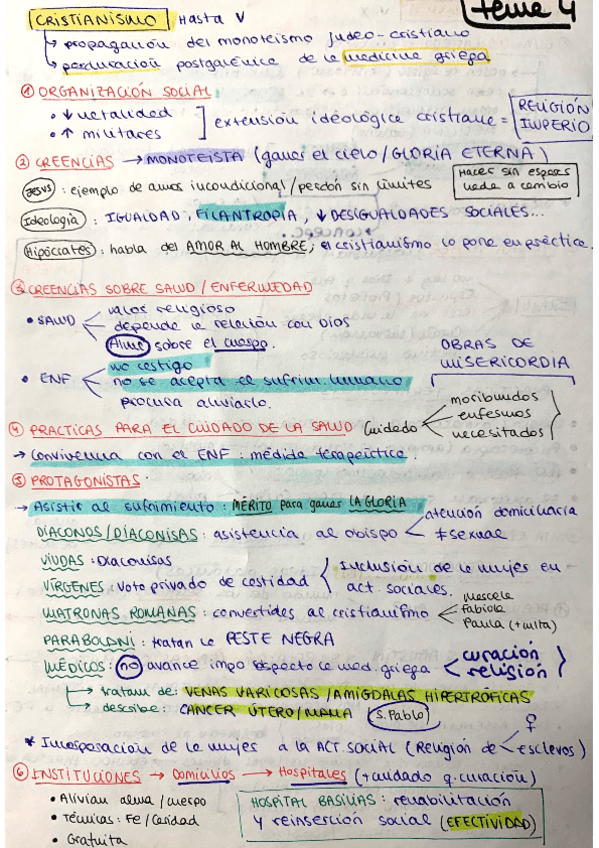 tema 4
CRISTIANISMO Hasta V
↳ propagación del monoteísmo judeo-cristiano
↳ perduración postgalénica de la medicina griega
① ORGANIZACIÓN SOCIAL
• ↓ natalidad
• ↑ militares
] extensión ideológica cristiana =
RELIGIÓN IMPERIO
② CREENCIAS → MONOTEISTA (ganar el cielo / GLORIA ETERNA)
Jesús : ejemplo de amor incondicional / perdón sin límites
Hacer sin esperar nada a cambio
Ideología : IGUALDAD, FILANTROPÍA, ↓ DESIGUALDADES SOCIALES...
Hipócrates : habla del AMOR AL HOMBRE; el cristianismo lo pone en práctica.
③ CREENCIAS SOBRE SALUD / ENFERMEDAD
• SALUD
valor religioso
depende la relación con Dios
Alma sobre el cuerpo.
• ENF
no castigo
no se acepta el sufrim. humano
procura aliviarlo.
OBRAS DE MISERICORDIA
④ PRACTICAS PARA EL CUIDADO DE LA SALUD
Cuidado
moribundos
enfermos
necesitados
→ Convivencia con el ENF : médida terapeútica
⑤ PROTAGONISTAS
→ Asistir al sufrimiento : MÉRITO para ganar LA GLORIA
DIÁCONOS / DIACONISAS : asistencia al obispo
atención domiciliaria
≠ sexual
VIUDAS : Diaconisas
VÍRGENES : Voto privado de castidad
Inclusión de la mujer en act. sociales.
MATRONAS ROMANAS : convertidas al cristianismo
Marcela
Fabiola
Paula (+ culta)
PARABOLANI : tratan la PESTE NEGRA
MÉDICOS : no avance impo respecto la med. griega
curación
religión
↳ tratan de : VENAS VARICOSAS / AMÍGDALAS HIPERTRÓFICAS
↳ describe : CANCER ÚTERO / MAMA (S. Pablo)
* Incorporación de la mujer a la ACT. SOCIAL (Religión de
♀
esclavos)
⑥ INSTITUCIONES → Domicilios → Hospitales (+ cuidado q. curación)
• Alivian alma / cuerpo
• Técnicas : Fe / Caridad
• Gratuita
HOSPITAL BASILIAS : rehabilitación
y reinserción social (EFECTIVIDAD)